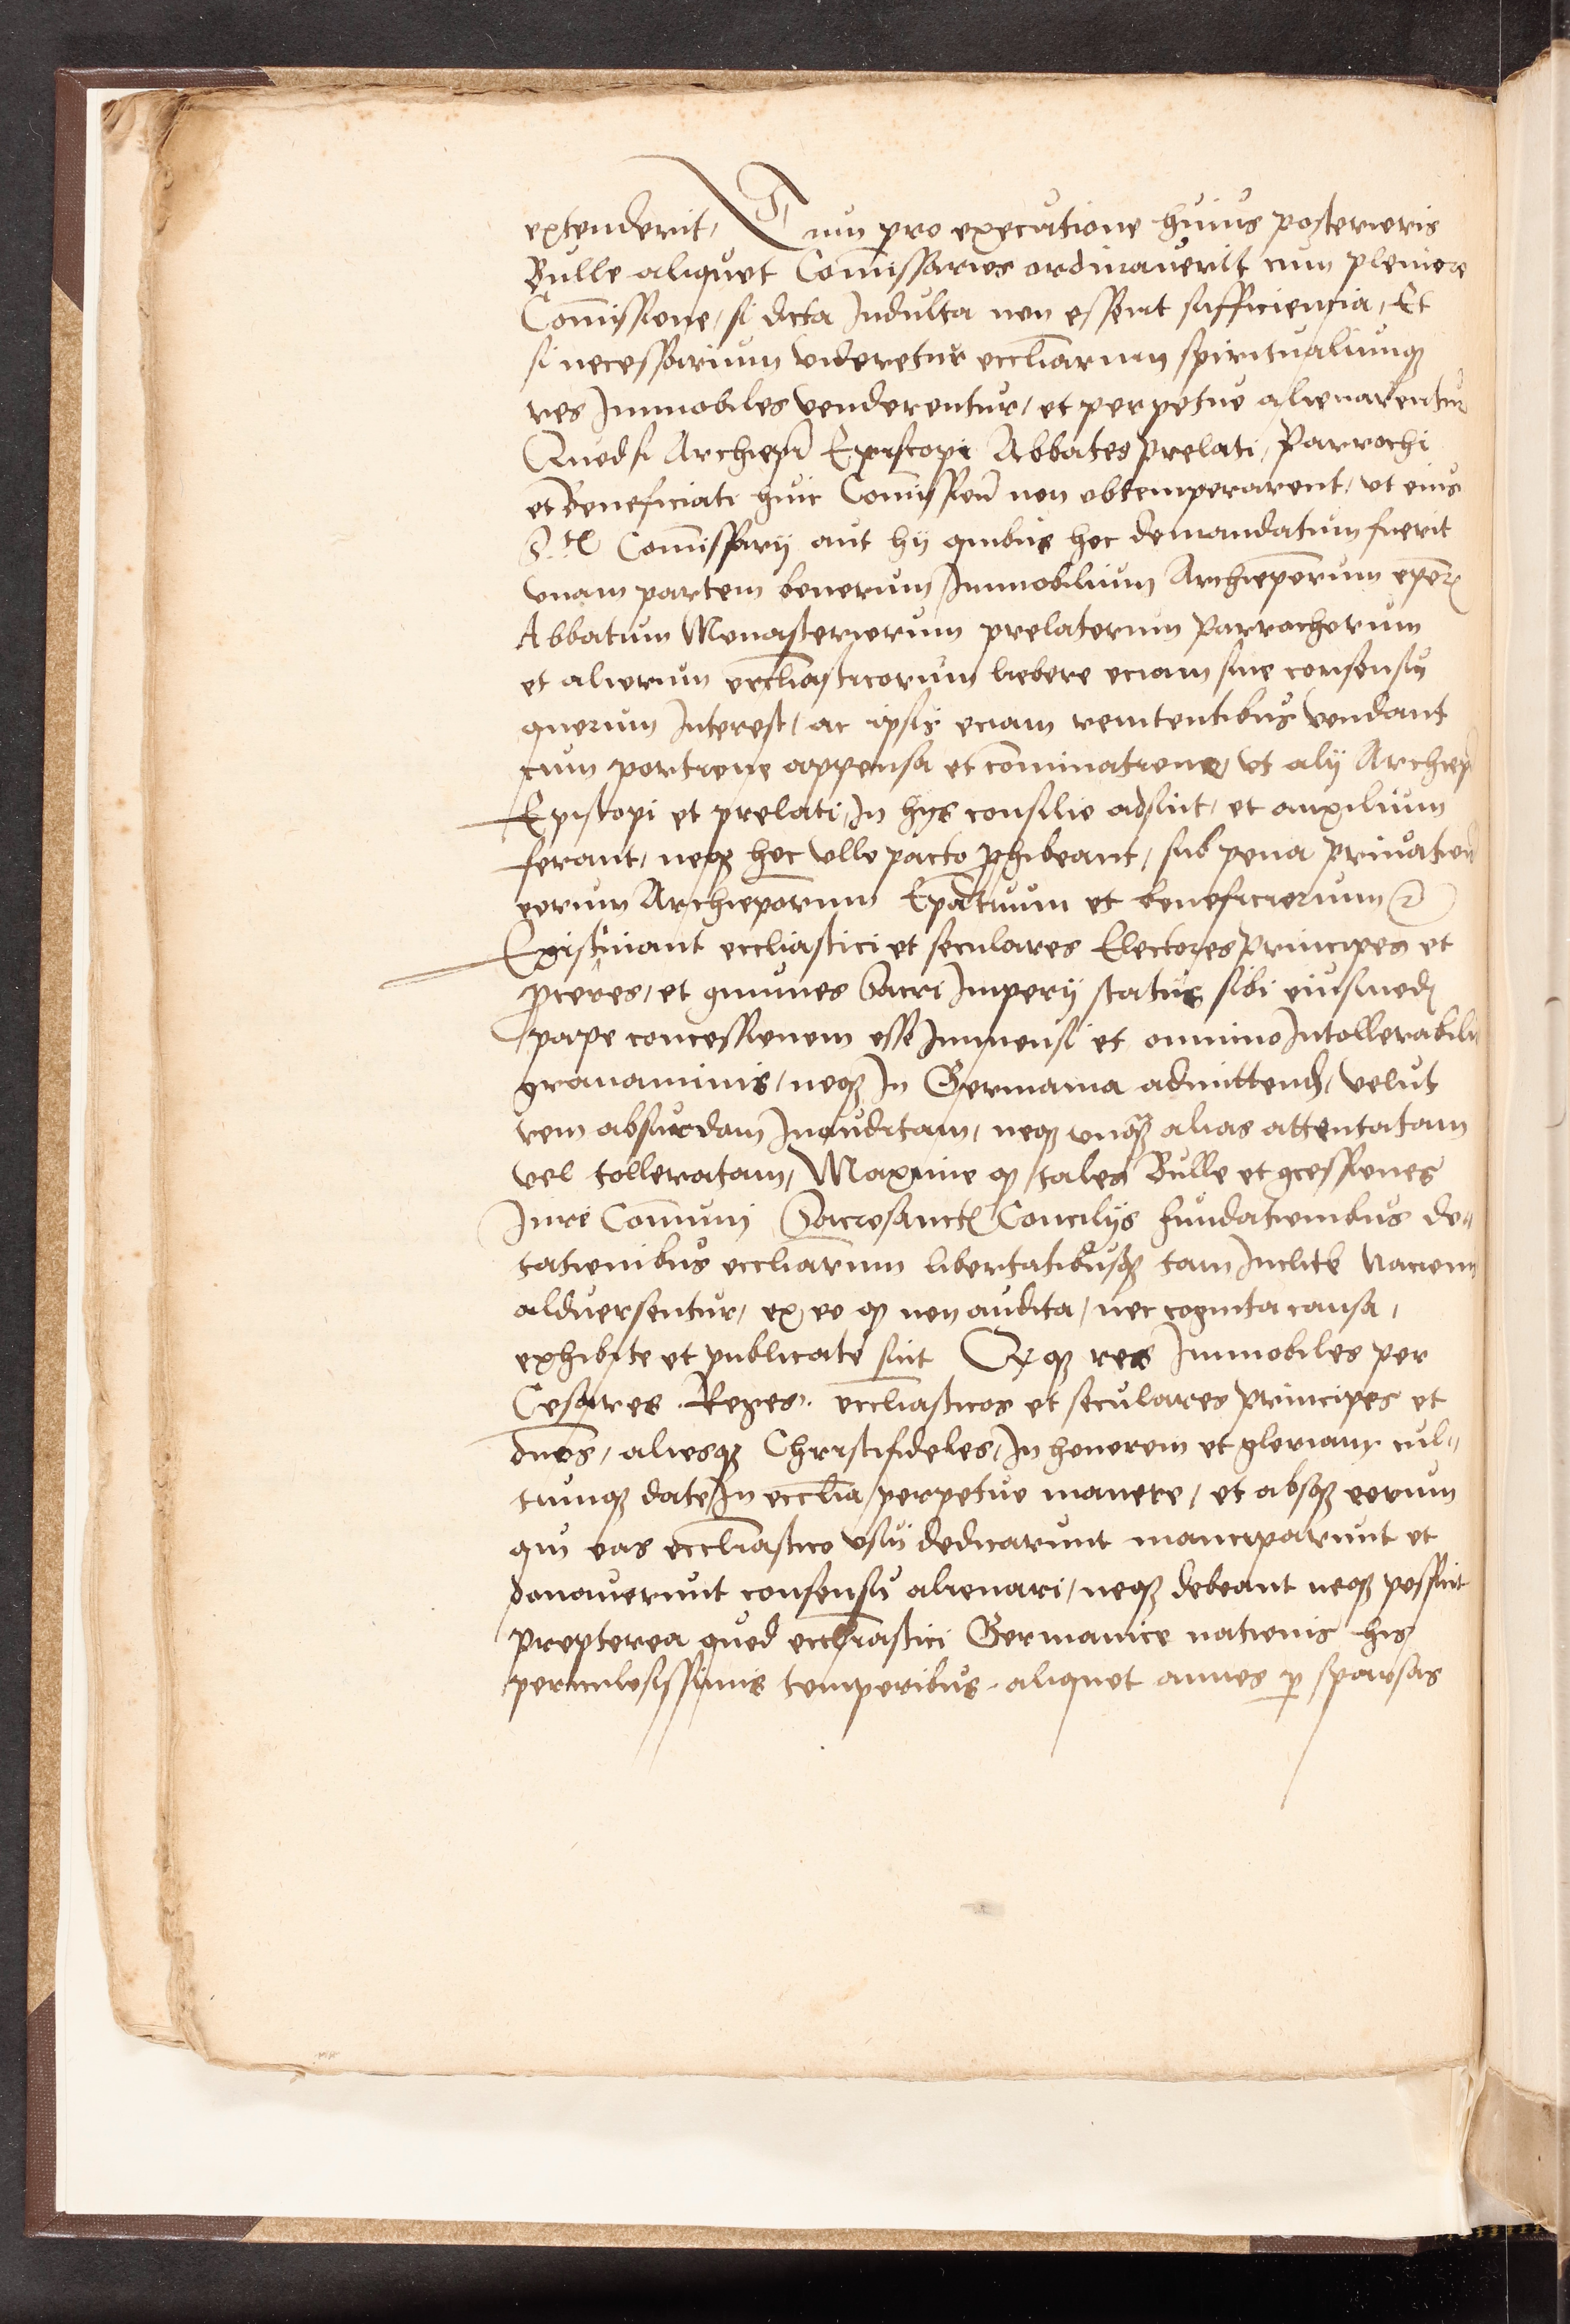 extenderit, Tum pro executione huius posterioris
Bulle aliquot Com̄issarios ordinauerit cum pleniore
Com̄issione, si dicta Indulta non essent sufficiencia, Et
si necessarium videretur eccl̄iarum spiritualiumqꝫ
res Immobiles venderentur, et perpetuo alienarentur
Quodsi Archiep̄i Episcopi Abbates prelati, Parrochi
et Beneficiati huic Com̄issioni non obtemperarent, vt eius
S.tis Com̄issarij aut hij quibus hoc demandatum fuerit
vnam partem bonorum Immobilium Archiep̄orum ep̄orum
Abbatum Monasteriorum prelatorum Parrochorum
et aliorum eccl̄iasticorum libere eciam sine consensu
quorum Interest, ac ipsis eciam renitentibus vendant
cum portione appensa et com̄inatione, vt alij Archiep̄i
Episcopi et prelati, In hijs consilio adsint, et auxilium
ferant, neqꝫ hoc vllo pacto ꝓhibeant, sub pena priuationis
eorum Archiep̄orum Ep̄atuum et beneficiorum ꝛc
Existimant eccl̄iastici et seculares Electores principes et
ꝓceres, et ꝯmunes Sacri Imperij status sibi eiusmodi
pape concessionem esse Immensi et omnino Intollerabilis
grauaminis, neqꝫ In Germania admittendam, velut
rem absurdam Inauditam, neqꝫ vnqꝫ alias attentatam
vel tolleratam, Maxime ꝙ tales Bulle et ꝯcessiones
Iure Com̄uni Sacrosanctis Concilijs fundationibus do⸗
tationibus eccl̄iarum libertatibusqꝫ tam Inclite Nacionis
alduersentur, ex eo ꝙ non audita, nec cognita causa,
exhibite et publicate sint Et qꝫ res Immobiles per
Cesares. Reges. eccl̄iasticos et seculares principes et
dn̄os, aliosqꝫ Christifideles, In honorem et gloriam cul⸗
tumqꝫ date, In eccl̄ia, perpetuo manere, et absqꝫ eorum
qui eas eccl̄iastico vsui dedicarunt manciparunt et
donauerunt consensu alienari, neqꝫ debeant neqꝫ possint
propterea quod eccl̄iastici Germanice nationis his
periculosissimis temporibus. aliquot annos ꝑ sparsas